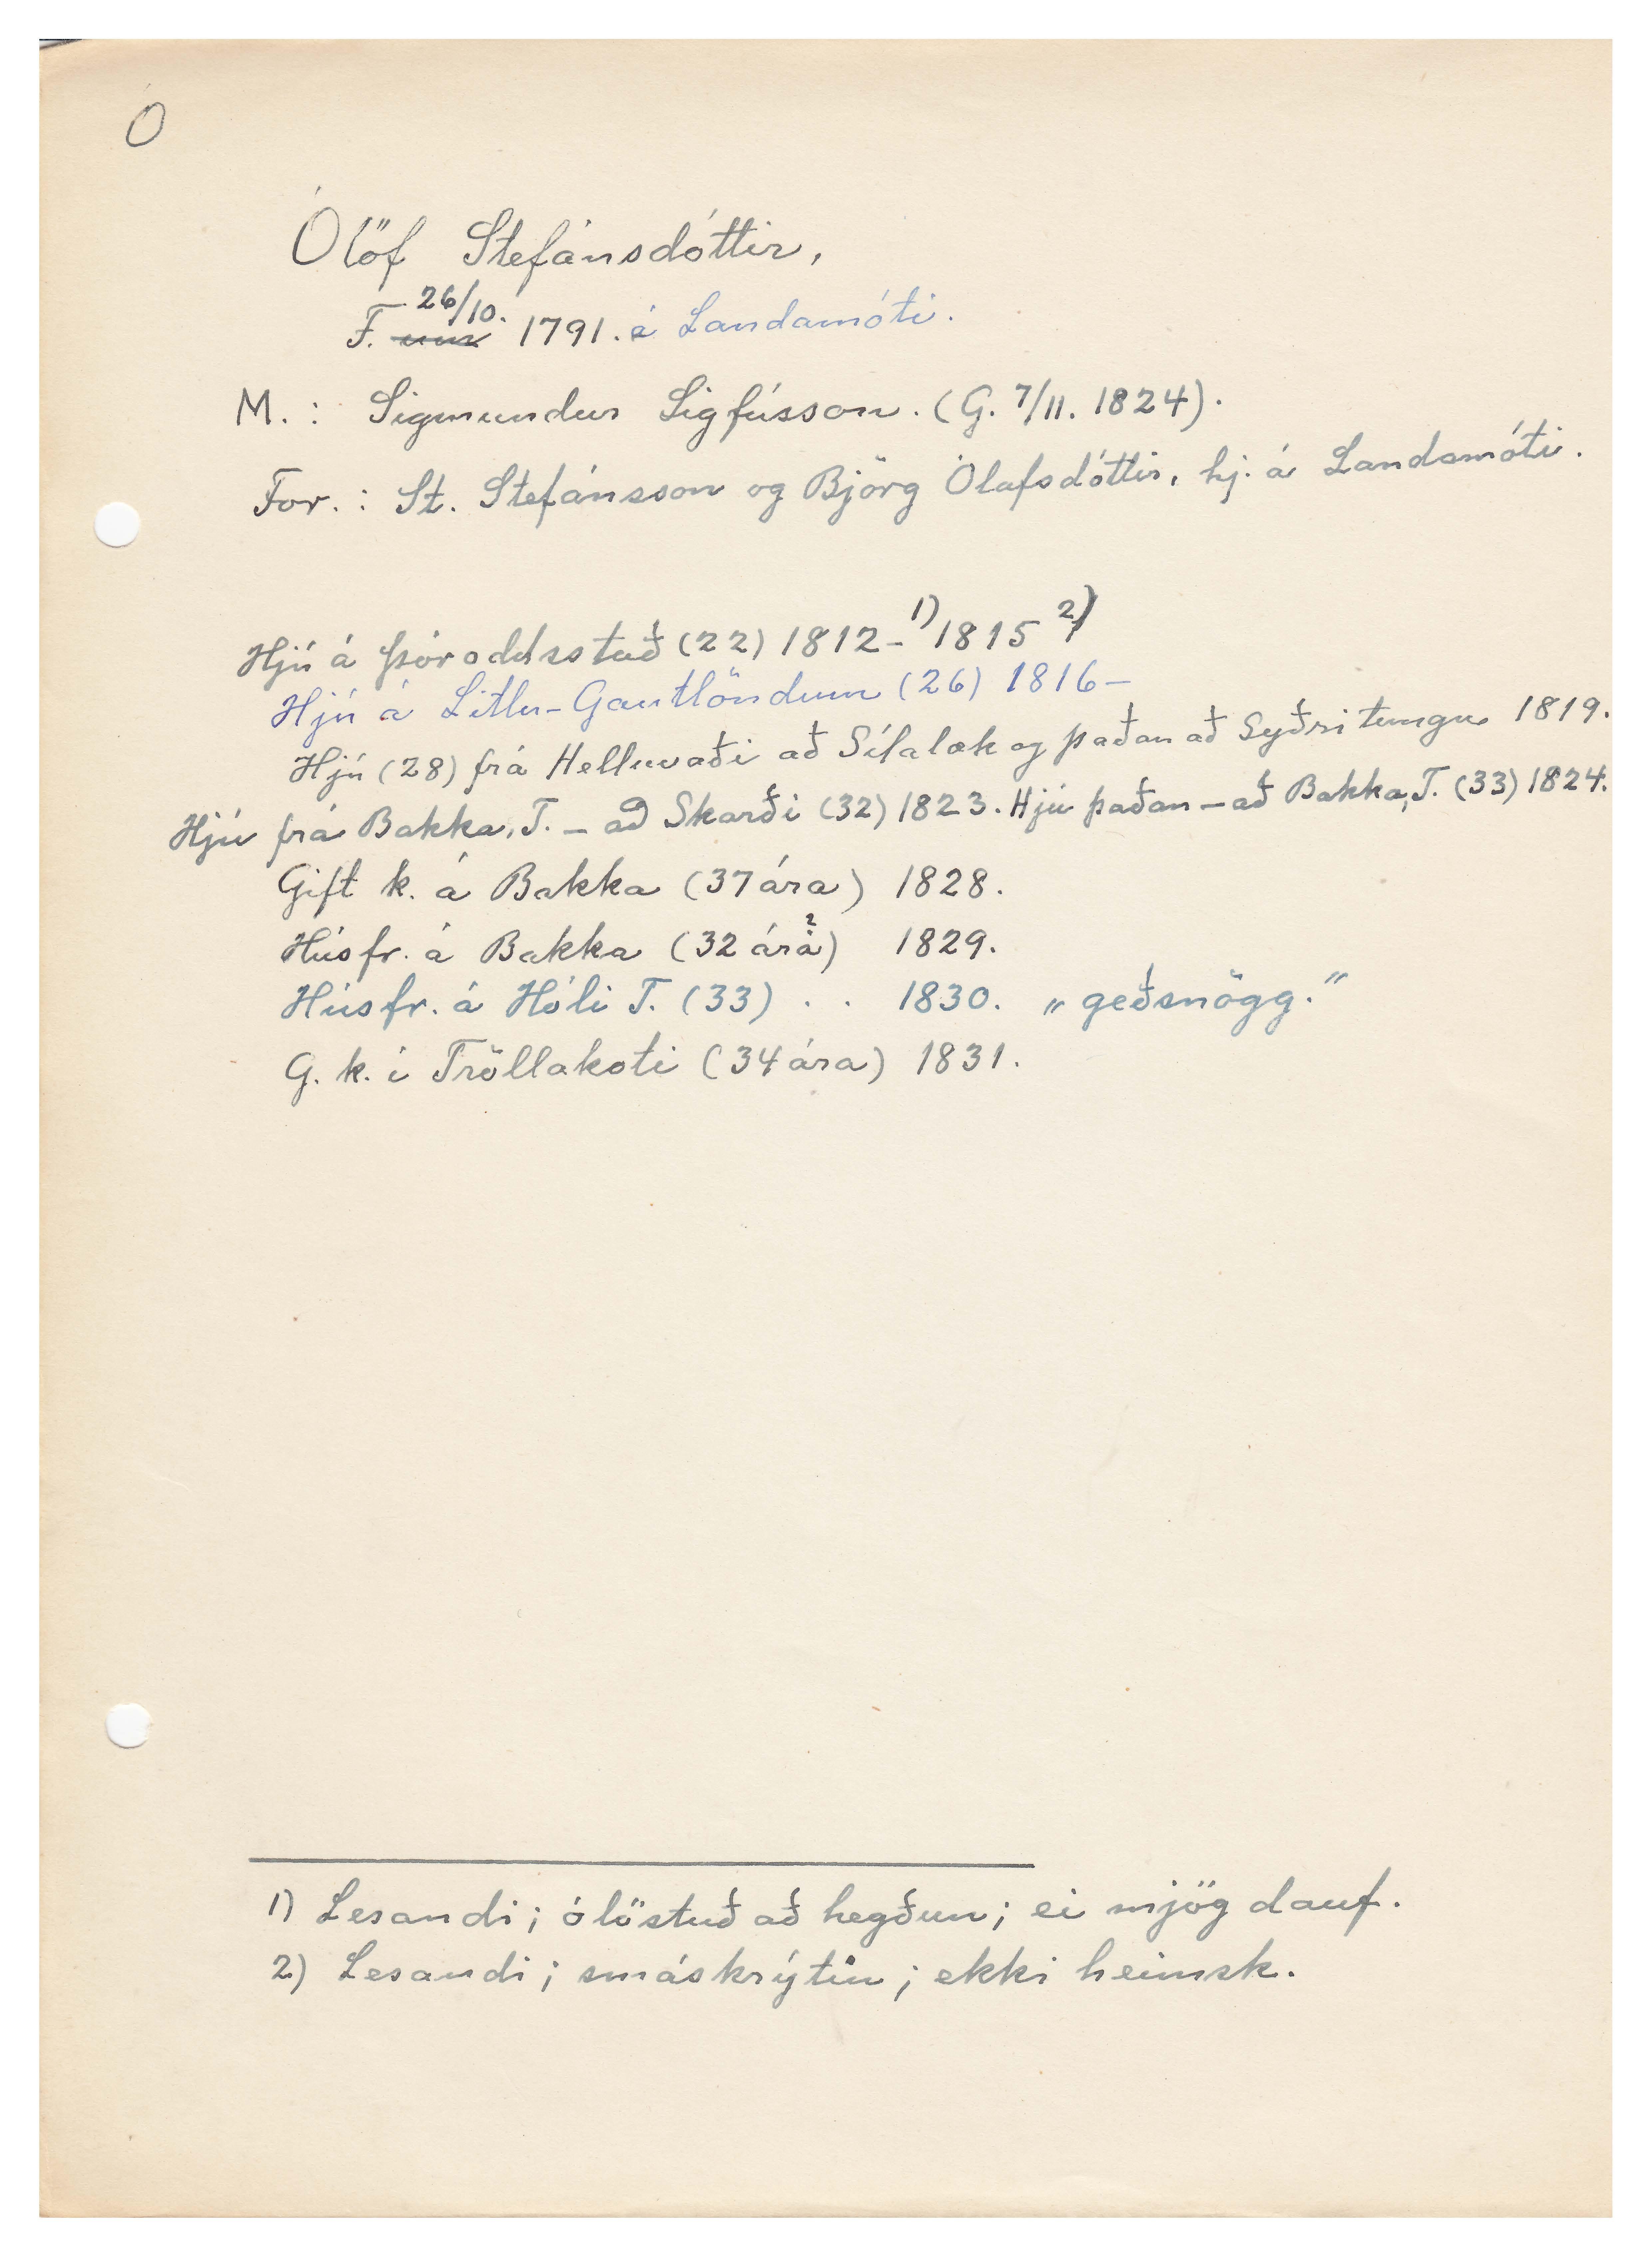 Ó
Ólöf Stefánsdóttir,
F. 26/10. 1791. á Landamóti.
M.: Sigmundur Sigfússon. (G. 7/11. 1824).
For.: St. Stefánsson og Björg Ólafsdóttir, hj. á Landamóti.
Hjú á Þóroddsstað (22) 1812-1) 1815 2)
Hjú á Litlu-Gautlöndum (26) 1816-
Hjú (28) frá Helluvaði að Sílalæk og þaðan að Syðri tungu 1819.
Hjú frá Bakka, T. - að Skarði (32) 1823. Hjú þaðan - að Bakka, T. (33) 1824.
Gift k. á Bakka (37 ára) 1828.
Húsfr. á Bakka (32 ára?) 1829.
Húsfr. á Hóli T. (33) . . 1830. „geðsnögg."
G. k. í Tröllakoti (34 ára) 1831.
1) Lesandi; ólöstuð að hegðun; ei mjög dauf.
2) Lesandi; smáskrýtin; ekki heimsk.